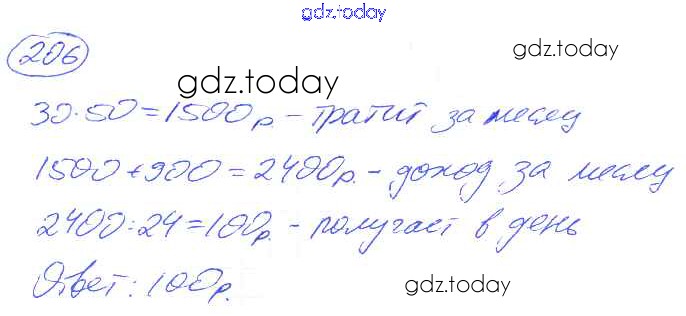 gdz.today
206
gdz.today
gdz.today
30·50=1500р. – тратит за месяц
1500+900=2400р. – доход за месяц
2400:24=100р. – получает в день
Ответ: 100р.
gdz.today
gdz.today